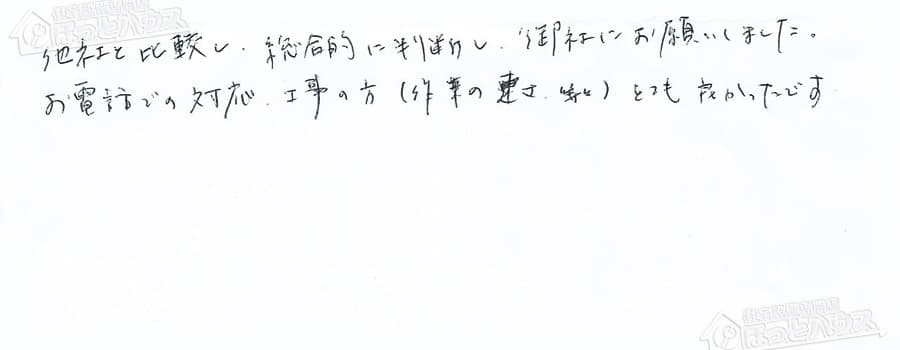 他社と比較し、総合的に判断し、御社にお願いしました。
お電話での対応、工事の方(作業の速さ、等々)とても良かったです
住宅設備専門店
ほっとハウス
住宅設備専門店
ほっとハウス